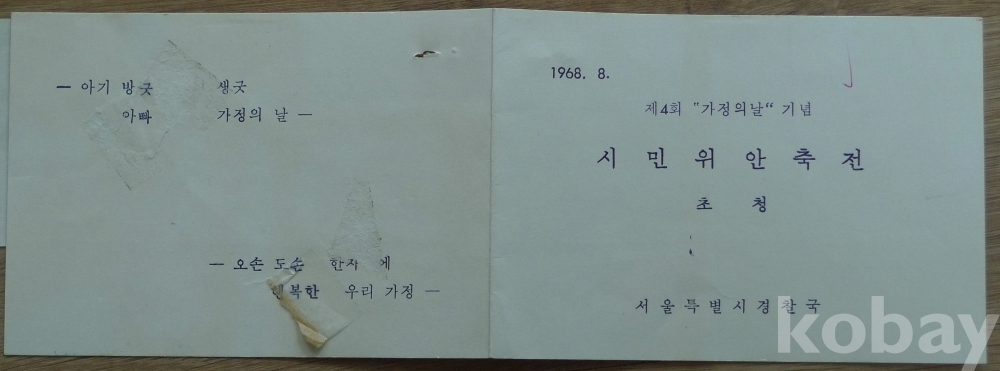 — 아기 방긋 생긋
아빠 가정의 날 —
— 오손 도손 한자 에
행복한 우리 가정 —
1968. 8.
제4회 "가정의날“ 기념
시민위안축전
초청
서울특별시경찰국
kobay